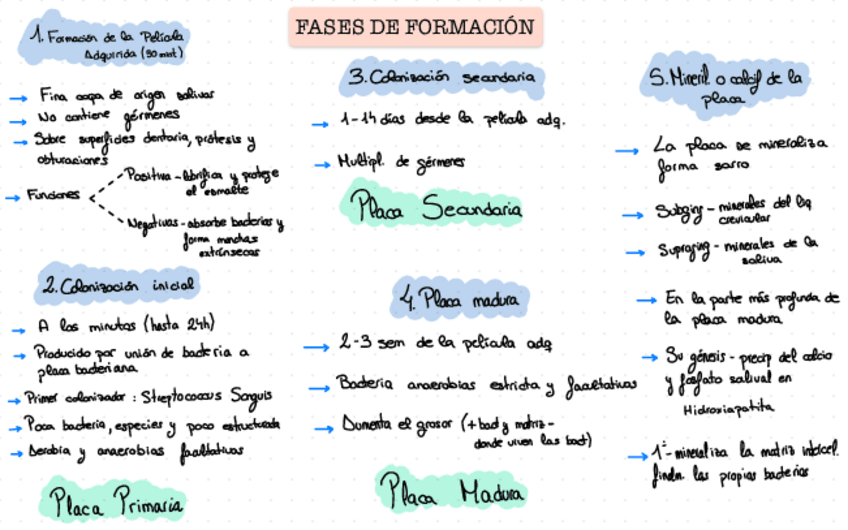 FASES DE FORMACIÓN
1. Formación de la Película
Adquirida (90 mint)
→ Fina capa de origen salivar
→ No contiene gérmenes
→ Sobre superficies dentaria, prótesis y
obturaciones
→ Funciones
Positiva - lubrifica y protege
el esmalte
Negativas - absorbe bacterias y
forma manchas
extrínsecas
2. Colonización inicial
→ A los minutos (hasta 24h)
→ Producido por unión de bacteria a
placa bacteriana
→ Primer colonizador : Streptococcus Sanguis
→ Poca bacteria, especies y poco estructurada
→ Aerobia y anaerobias facultativas
Placa Primaria
3. Colonización secundaria
→ 1-14 días desde la película adq.
→ Multipl. de gérmenes
Placa Secundaria
4. Placa madura
→ 2-3 sem de la película adq
→ Bacteria anaerobias estricta y facultativas
→ Aumenta el grosor (+ bact y matriz -
donde viven las bact)
Placa Madura
5. Mineril o calcif de la
placa
→ La placa se mineraliza
forma sarro
→ Subging - minerales del liq
crevicular
→ Supraging - minerales de la
saliva
→ En la parte más profunda de
la placa madura
→ Su génesis - precip del calcio
y fosfato salival en
Hidroxiapatita
→ 1º - mineraliza la matriz intercel.
finalm. las propias bacterias